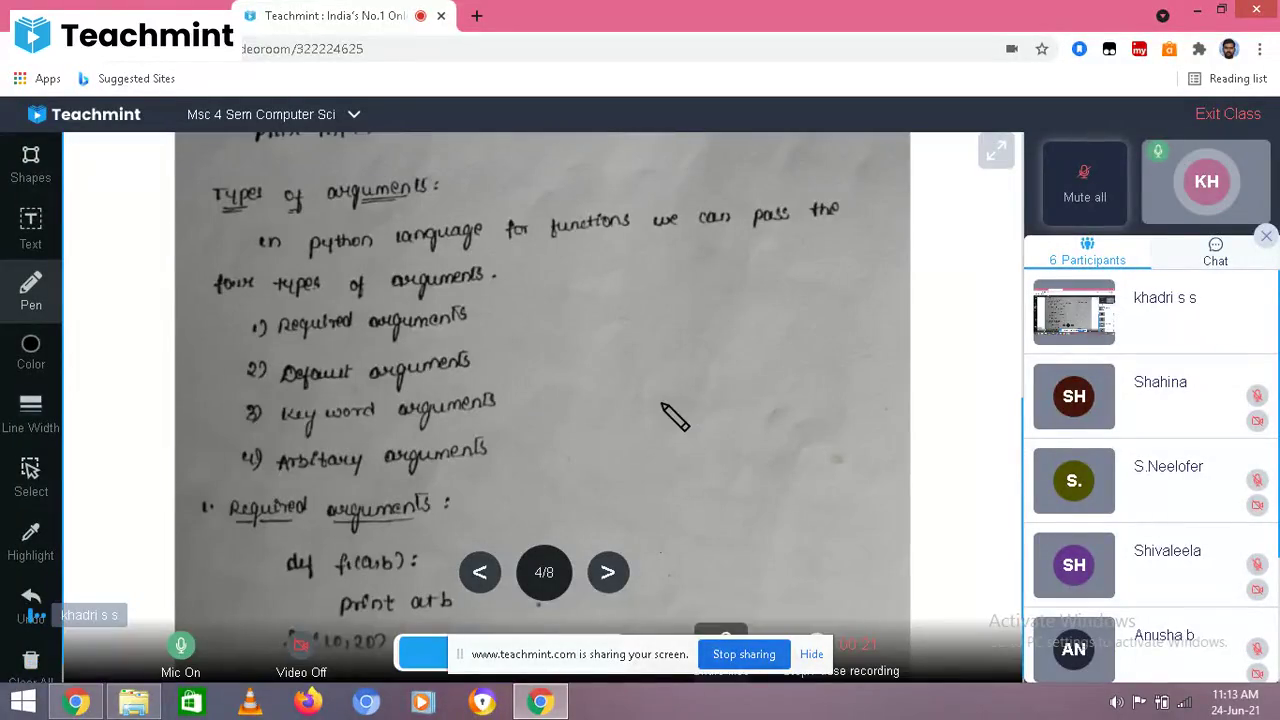 Teachmint : India's No.1 Onl
Teachmint
deoroom/322224625
Apps
Suggested Sites
Reading list
Teachmint
Msc 4 Sem Computer Sci
Exit Class
Shapes
Text
Pen
Color
Line Width
Select
Highlight
Undo
Types of arguments:
in python language for functions we can pass the
four types of arguments.
1) Required arguments
2) Default arguments
3) Key word arguments
4) Arbitary arguments
1. Required arguments:
def f1(a,b):
print a+b
(10,20)
<
4/8
>
khadri s s
Mic On
Video Off
www.teachmint.com is sharing your screen.
Stop sharing
Hide
00:21
recording
Mute all
KH
6 Participants
Chat
khadri s s
SH
Shahina
S.
S.Neelofer
SH
Shivaleela
AN
Anusha b
Activate Windows
PC settings to activate Windows.
11:13 AM
24-Jun-21